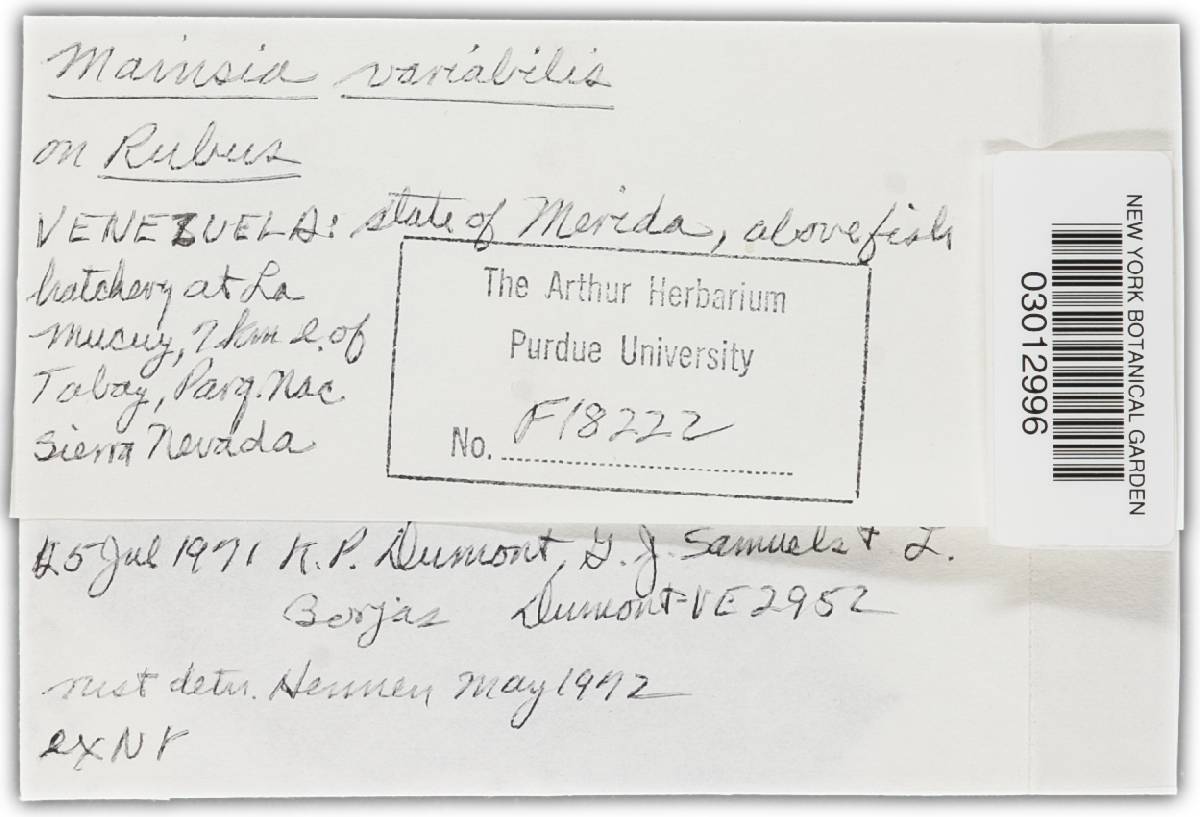 Mainsia variabilis
on Rubus
VENEZUELA: state of Merida, above fish
hatchery at La
Mucuy, 7 km e. of
Tabay, Parq. Nac
Sierra Nevada
The Arthur Herbarium
Purdue University
No. F18222
NEW YORK BOTANICAL GARDEN
03012996
25 Jul 1971 K. P. Dumont, G. J. Samuels + L.
Borjas Dumont-VE 2952
rust detr. Hennen May 1972
ex NY